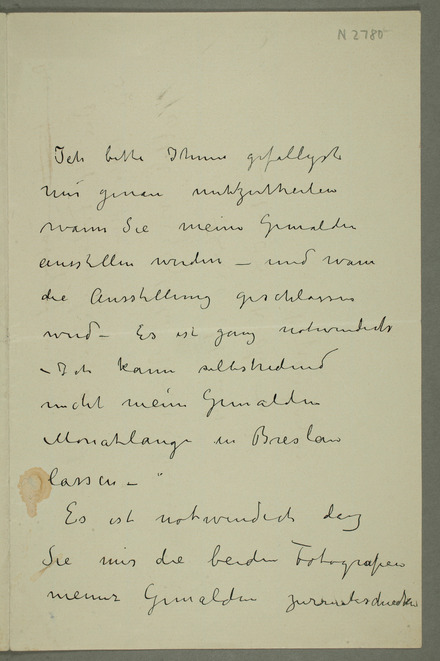 N 2780
Ich bitte Ihnen gefälligst
mir genau mitzutheilen
wann Sie meine Gemalden
ausstellen werden – und wann
die Ausstellung geschlossen
wird – Es ist ganz notwendich
– Ich kann selbstredend
nicht meine Gemalden
Monatlange in Breslau
lassen – "
Es ist notwendich dass
Sie mir die beiden Fotografien
meiner Gemalden zurrückschicken